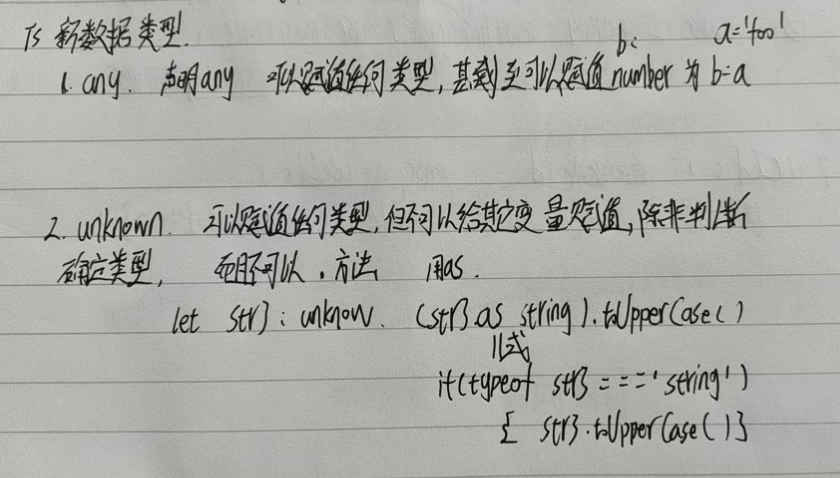 TS 新数据类型.
b: a='foo'
1. any. 声明any 可以赋值任何类型,甚至可以赋值number 为 b=a
2. unknown. 可以赋值任何类型,但不可以给其它变量赋值,除非判断
确定类型, 而且不可以 . 方法 用as.
let str3 : unknow. (str3 as string).toUpperCase()
或
if(typeof str3 === 'string')
{ str3.toUpperCase()}